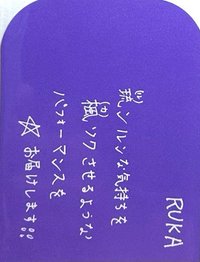 RUKA
琉ンルンな気持ちを
楓ソワさせるような
パフォーマンスを
☆お届けします!!